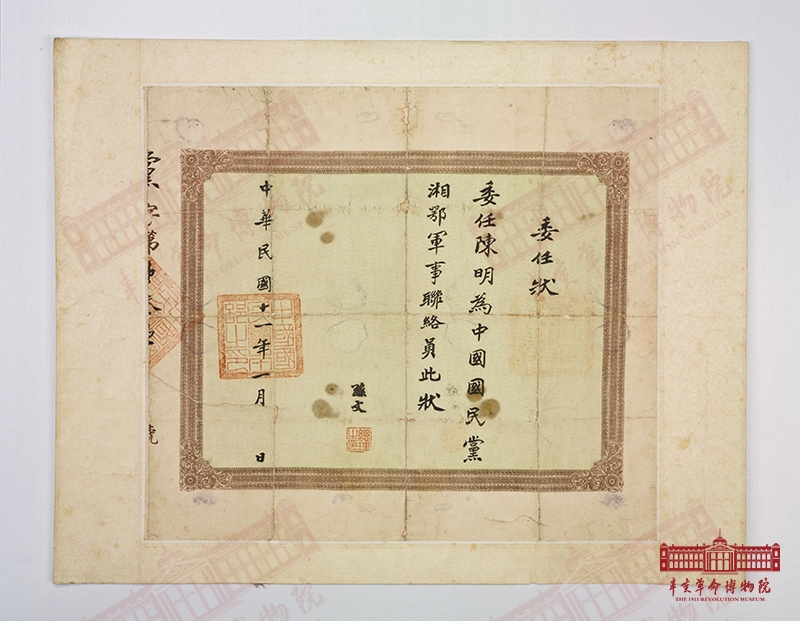 委任狀
委任陳明為中國國民黨
湘鄂軍事聯絡員此狀
孫文
中華民國十一年一月 日
黨字第
號
辛亥革命博物院
THE 1911 REVOLUTION MUSEUM